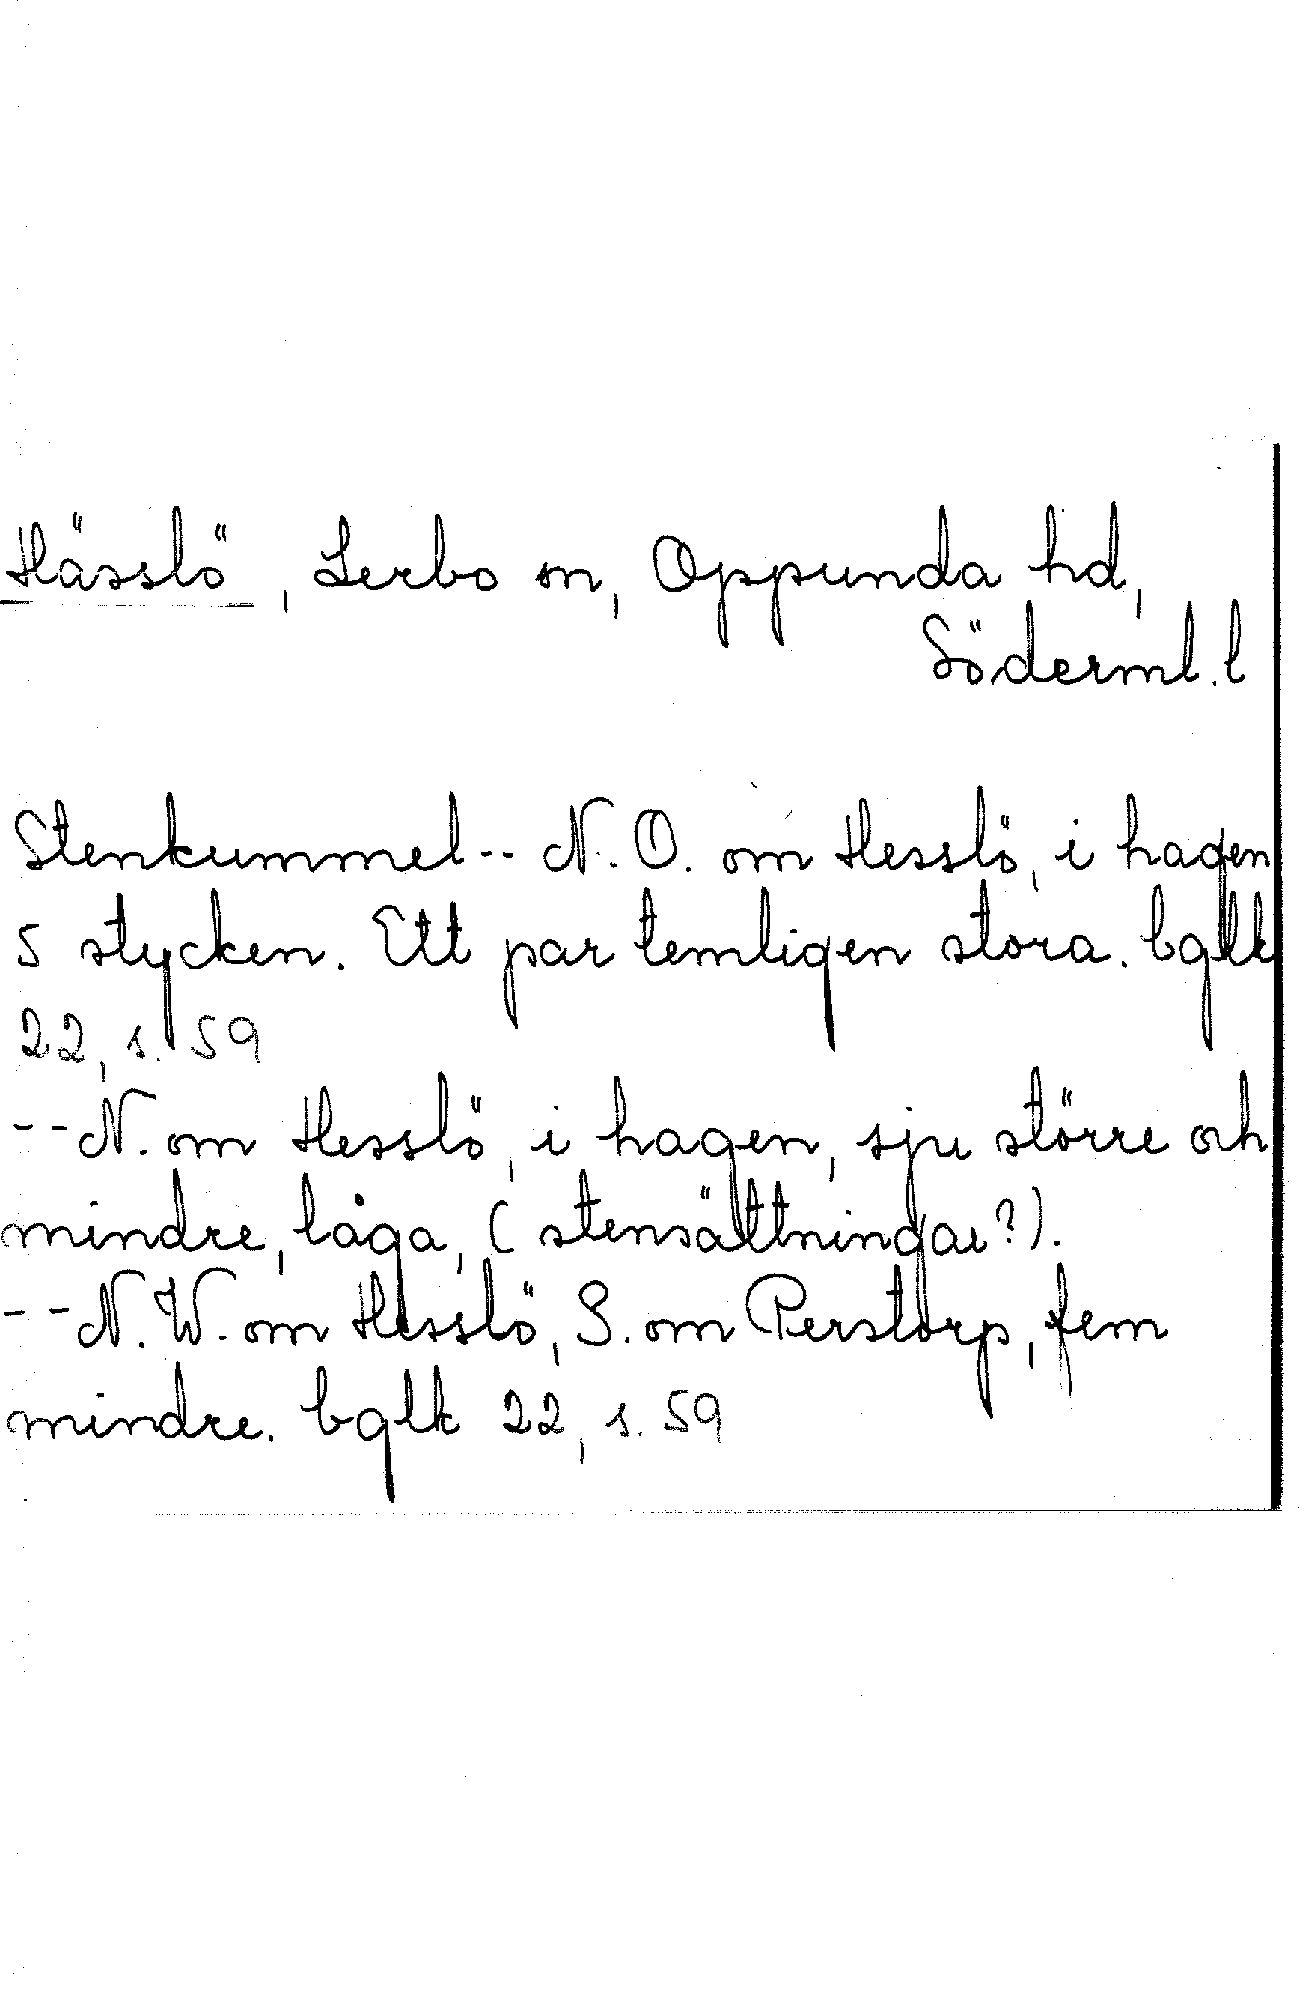 Hässlö, Lerbo sn, Oppunda hd,
Söderml. l
Stenkummel -- N. O. om Hesslö, i hagen
5 stycken. Ett par temligen stora. bglk
22, s. 59
-- N. om Hesslö, i hagen, sju större och
mindre, låga, (stensättningar?).
-- N. W. om Hesslö, S. om Perstorp, fem
mindre. bglk 22, s. 59